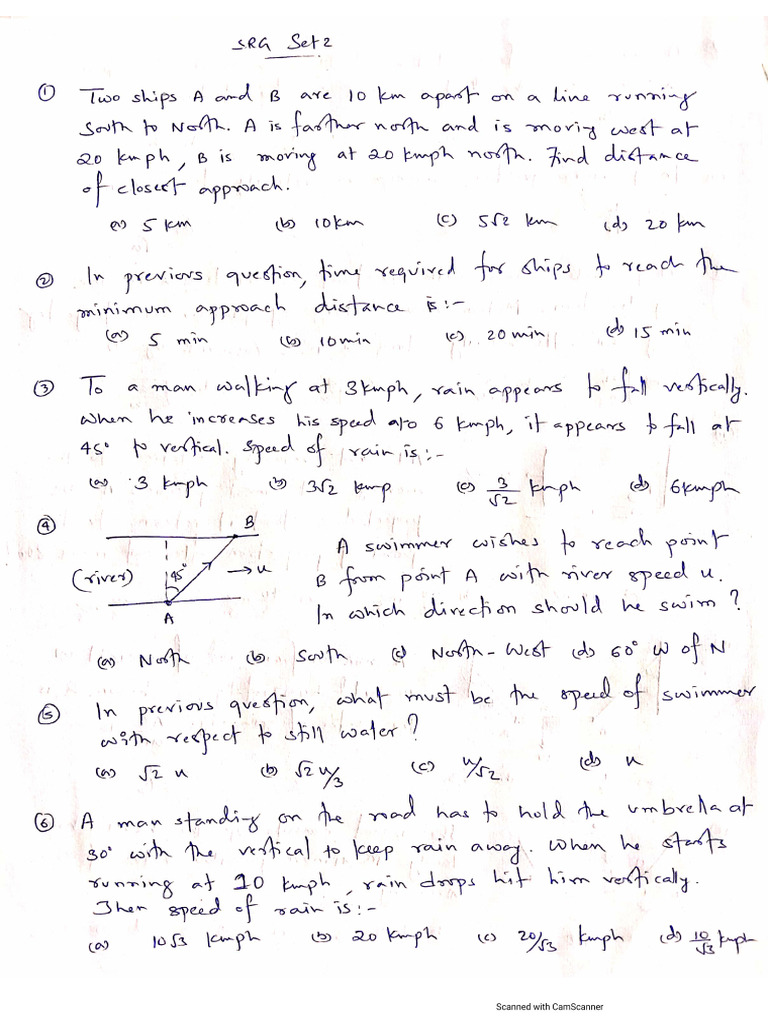 SRG Set 2
① Two ships A and B are 10 km apart on a line running
South to North. A is farther north and is moving west at
20 kmph, B is moving at 20 kmph north. Find distance
of closest approach.
(a) 5 km (b) 10 km (c) 5√2 km (d) 20 km
② In previous question, time required for ships to reach the
minimum approach distance is:-
(a) 5 min (b) 10 min (c) 20 min (d) 15 min
③ To a man walking at 3 kmph, rain appears to fall vertically.
When he increases his speed to 6 kmph, it appears to fall at
45° to vertical. Speed of rain is:-
(a) 3 kmph (b) 3√2 kmp (c) 3/√2 kmph (d) 6 kmph
④ B
(river) 45° → u
A
A swimmer wishes to reach point
B from point A with river speed u.
In which direction should he swim?
(a) North (b) South (c) North-West (d) 60° W of N
⑤ In previous question, what must be the speed of swimmer
with respect to still water?
(a) √2 u (b) √2 u/3 (c) u/√2 (d) u
⑥ A man standing on the road has to hold the umbrella at
30° with the vertical to keep rain away. When he starts
running at 10 kmph, rain drops hit him vertically.
Then speed of rain is:-
(a) 10√3 kmph (b) 20 kmph (c) 20/√3 kmph (d) 10/√3 kmph
Scanned with CamScanner